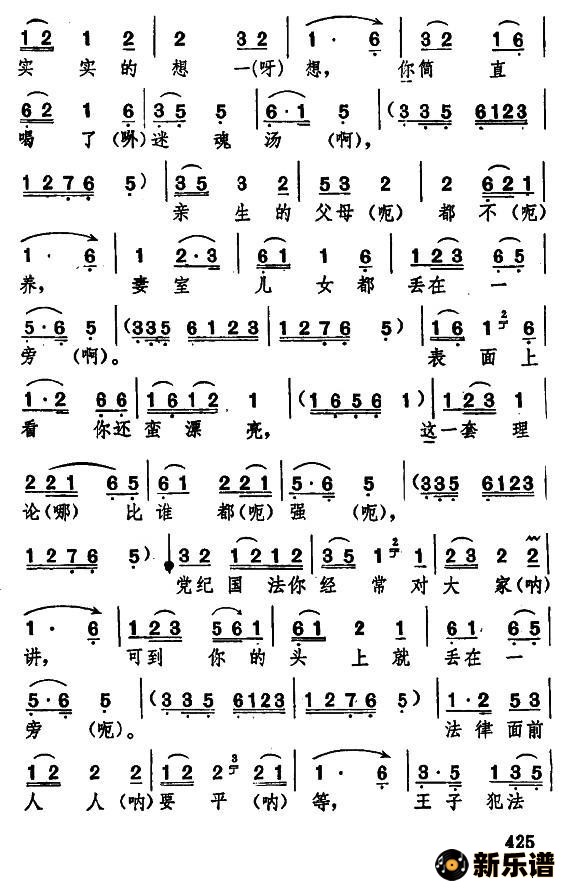 1 2 1 2 | 2 3 2 | 1 · 6 | 3 2 1 6 |
实 实 的 想 一(呀) 想, 你 简 直
6 2 1 6 | 3 5 5 | 6 · 1 5 | (3 3 5 6 1 2 3 |
喝 了 (咻) 迷 魂 汤 (啊),
1 2 7 6 5) | 3 5 3 2 | 5 3 2 2 6 2 1 |
亲 生 的 父母 (呃) 都 不 (呃)
1 · 6 | 1 2 · 3 | 6 1 1 6 | 1 2 3 6 5 |
养, 妻 室 儿 女 都 丢 在 一
5 · 6 5 | (3 3 5 6 1 2 3 | 1 2 7 6 5) | 1 6 1 2 6 |
旁 (啊)。 表 面 上
1 · 2 6 6 | 1 6 1 2 1 | (1 6 5 6 1) | 1 2 3 1 |
看 你还 蛮 漂 亮, 这一套 理
2 2 1 6 5 | 1 6 2 2 1 | 5 · 6 5 | (3 3 5 6 1 2 3 |
论(哪) 比 谁 都(呃) 强 (呃),
1 2 7 6 5) | 3 2 1 2 1 2 | 3 5 1 2 1 | 2 3 2 2 |
党纪 国 法你 经 常 对 大 家(呐)
1 · 6 | 1 2 3 5 6 1 | 6 1 2 1 | 6 1 6 5 |
讲, 可到 你 的 头 上 就 丢 在 一
5 · 6 5 | (3 3 5 6 1 2 3 | 1 2 7 6 5) | 1 · 2 5 3 |
旁 (呃)。 法 律 面前
1 2 2 2 | 1 2 2 3 2 1 | 1 · 6 | 3 · 5 1 3 5 |
人 人 (呐) 要 平 (呐) 等, 王 子 犯 法
425
新乐谱